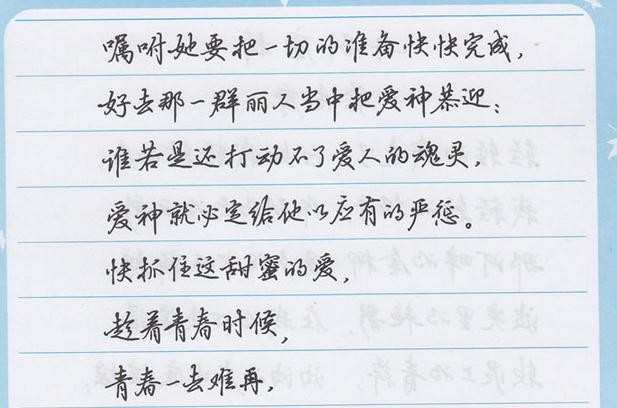 嘱咐她要把一切的准备快快完成，
好去那一群丽人当中把爱神恭迎；
谁若是还打动不了爱人的魂灵，
爱神就必定给他以应有的严惩。
快抓住这甜蜜的爱，
趁着青春时候，
青春一去难再，